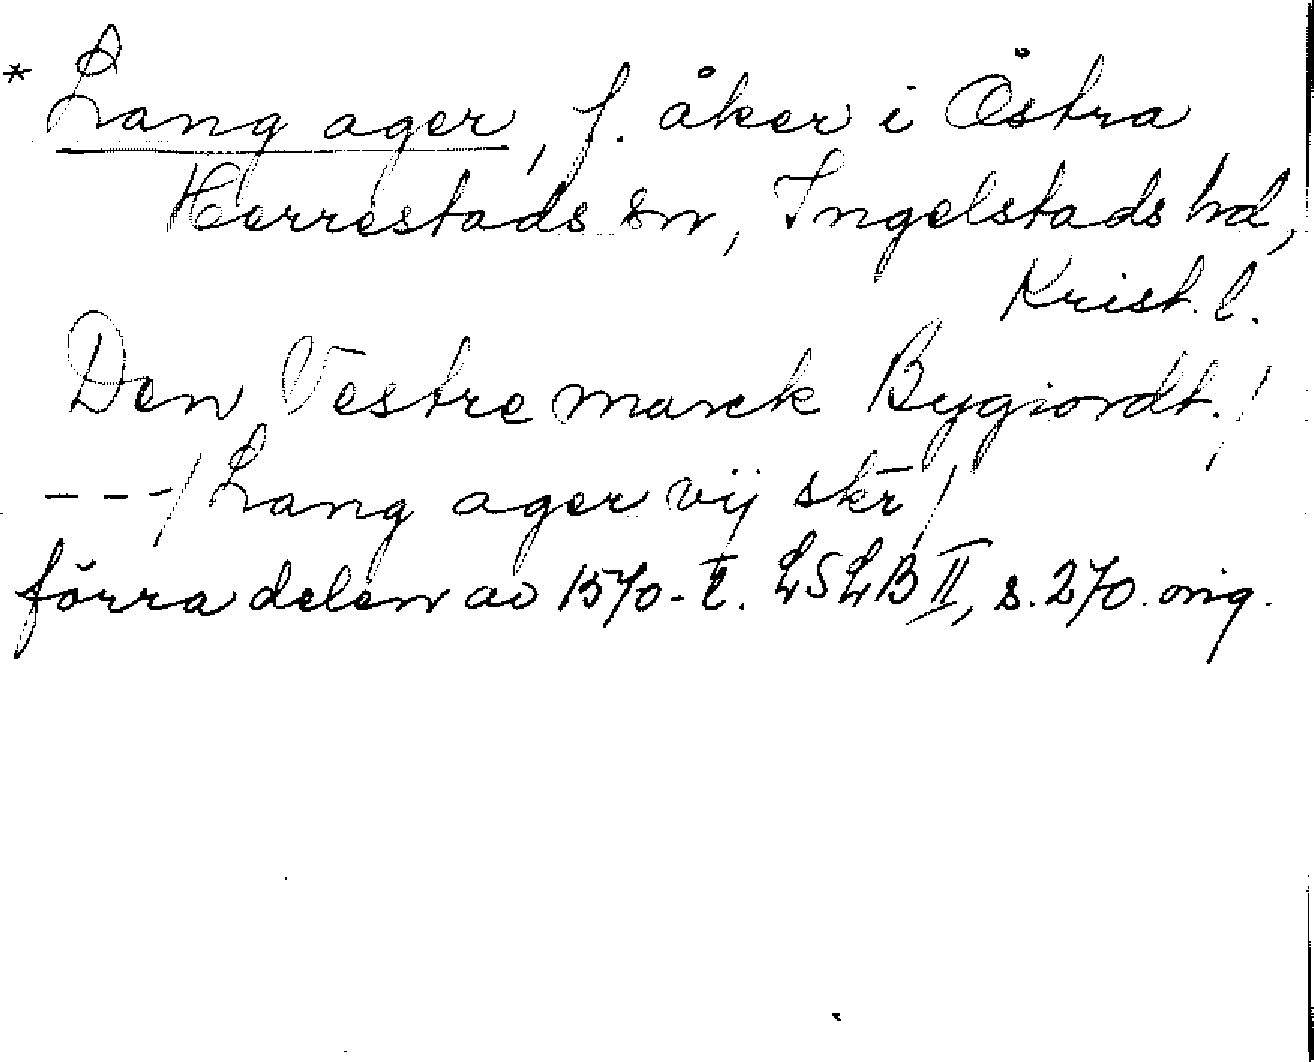 * Lang ager, f. åker i Östra
Herrestads sn, Ingelstads hd,
Krist. l.
Den Vestre marck Bygiordt./
---/Lang ager vij skr/
förra delen av 1570-t. LSLB II, s. 270. orig.